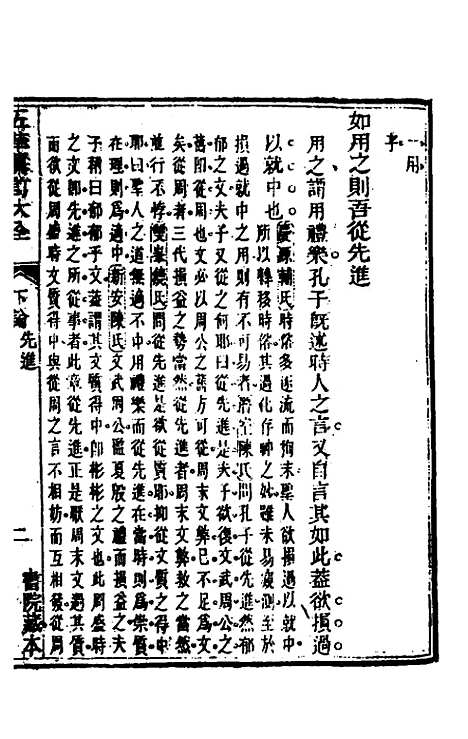 一用
字
如用之則吾從先進
用之謂用禮樂孔子旣述時人之言又自言其如此蓋欲損過
以就中也
輔氏時俗逐流而徇末聖人欲損過以就中
所以轉移時俗其過化存神之妙雖未易窺測至於
損過就中之用則有不可易者潛室陳氏問孔子從先進然郁
郁之文夫子又從之何耶曰從先進是夫子欲復文武周公之
舊周末文必以周公之舊方可從周末文弊已不足爲文
矣從周者三代損益之勢當然從先進者周末文弊救之當然
並行不悖雙峯饒氏問從先進是欲從質耶抑從文質之得中
耶曰聖人之道無適不中用禮樂而從先進在當時則爲崇質
在理則爲適中新安陳氏文武周公監夏殷之禮而損益之夫
子稱曰郁郁乎文蓋謂其文質得中卽彬彬之文也此周盛時
之文卽先進之所從事者此章從先進正是厭周末文過其質
而欲從周盛時文質得中與從周之言不相妨而互相發從周
大全
下論
先進
二
書院藏本